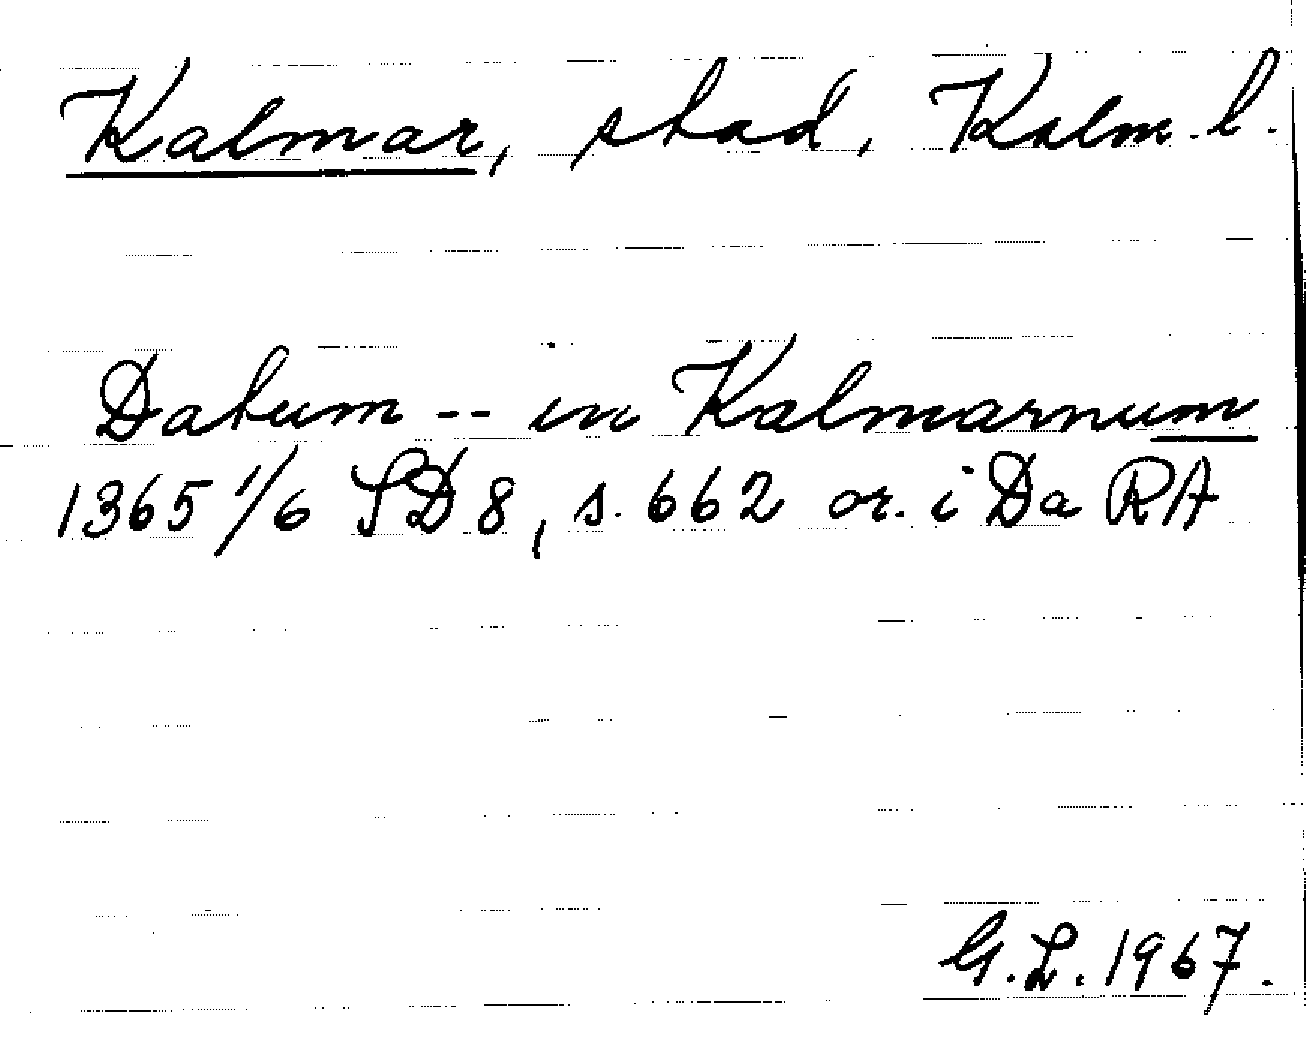 Kalmar, stad, Kalm. l.
Datum -- in Kalmarnum
1365 1/6 SD 8, s. 662 or. i Da RA
G.L. 1967.